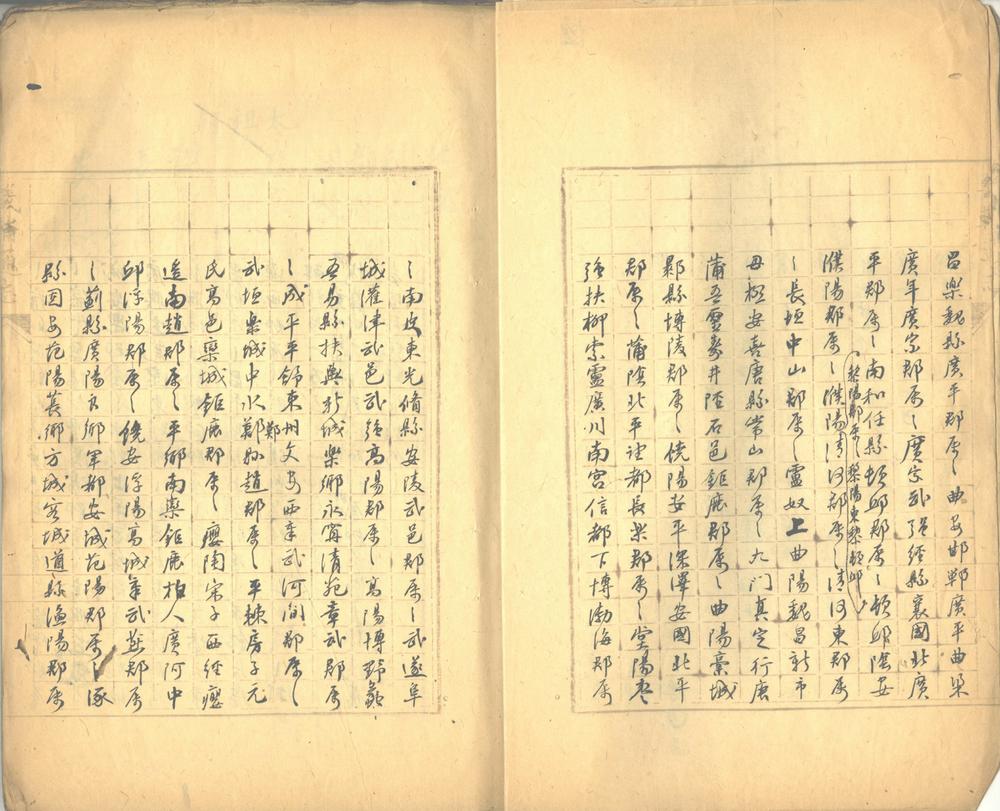 昌樂魏縣廣平郡屬〻曲安邯鄲廣平曲梁
廣年廣宗郡屬〻廣宗武強經縣襄國北廣
平郡屬〻南和任縣頓邱郡屬〻頓邱陰安
黎陽郡屬〻黎陽東黎頓邱
濮陽郡屬〻濮陽清河郡屬〻清河東郡屬
〻長垣中山郡屬〻靈奴上曲陽魏昌新市
毋極安喜唐縣常山郡屬〻九門真定行唐
蒲吾靈壽井陘石邑鉅鹿郡屬〻曲陽藁城
鄡縣博陵郡屬〻饒陽安平深澤安國北平
郡屬〻蒲陰北平望都長樂郡屬〻堂陽棗
強扶柳索靈廣川南宮信都下博渤海郡屬
〻南皮東光脩縣安陵武邑郡屬〻武遂阜
城灌津武邑武強高陽郡屬〻高陽博野蠡
吾易縣扶輿新城樂鄉永寧清苑章武郡屬
〻成平平舒束州文安西章武河間郡屬〻
武垣樂城中水鄚鄭孙趙郡屬〻平棘房子元
氏高邑欒城鉅鹿郡屬〻癭陶宋子西經癭
遙南趙郡屬〻平鄉南欒鉅鹿柏人廣阿中
邱浮陽郡屬〻饒安浮陽高城章武燕郡屬
〻薊縣廣陽良鄉軍都安城范陽郡屬〻涿
縣固安范陽萇鄉方城容城遒縣漁陽郡屬